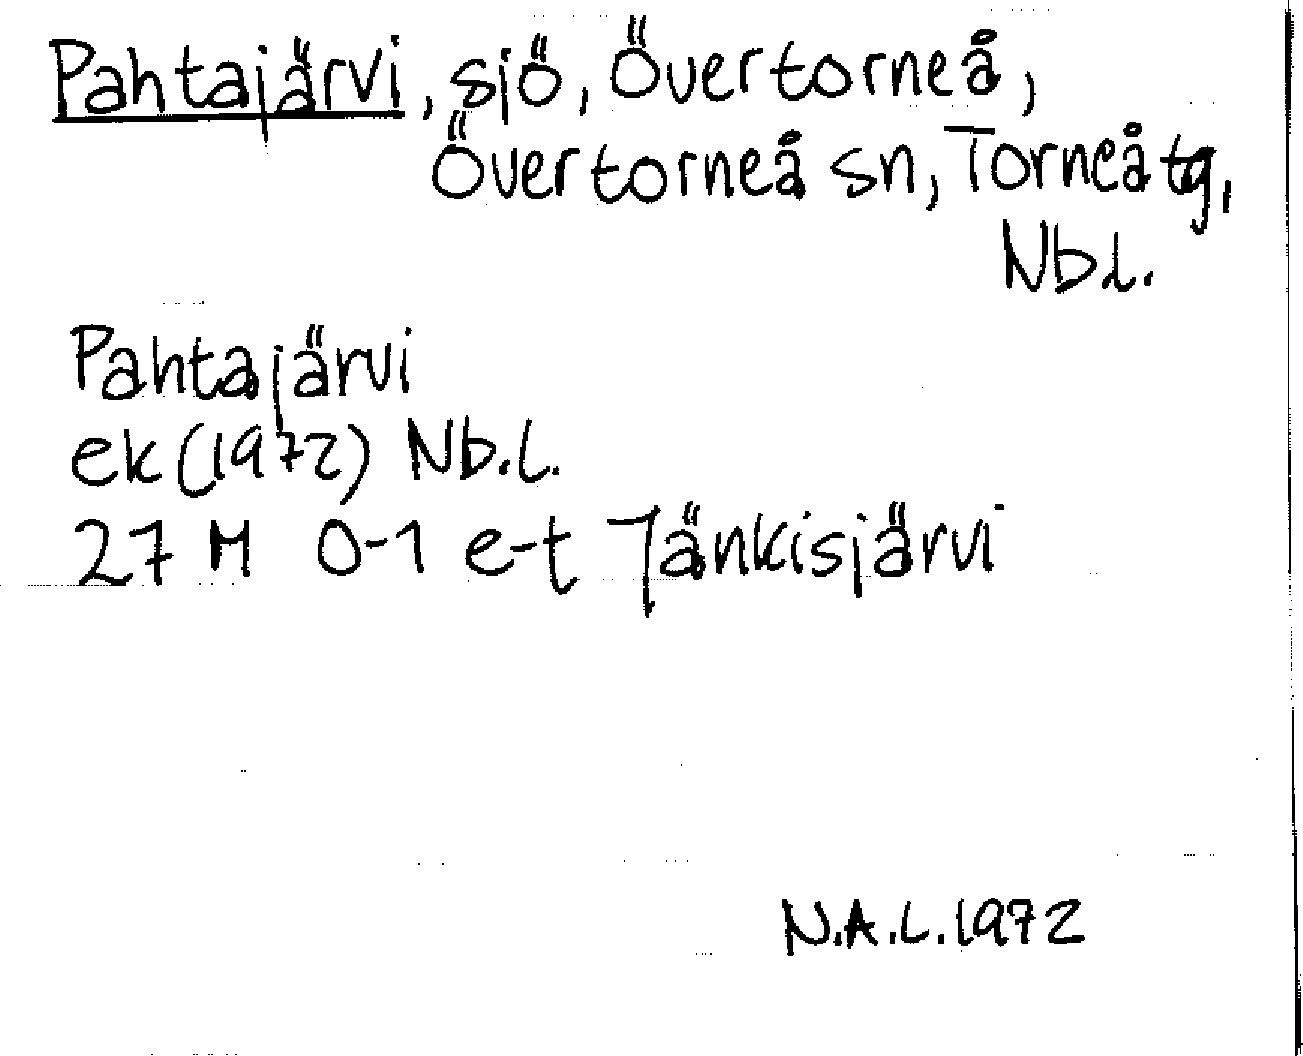 Pahtajärvi, sjö, Övertorneå,
Övertorneå sn, Torneå tg,
Nb.l.
Pahtajärvi
ek (1972) Nb.l.
27 M 0-1 e-t Jänkisjärvi
N.A.L. 1972